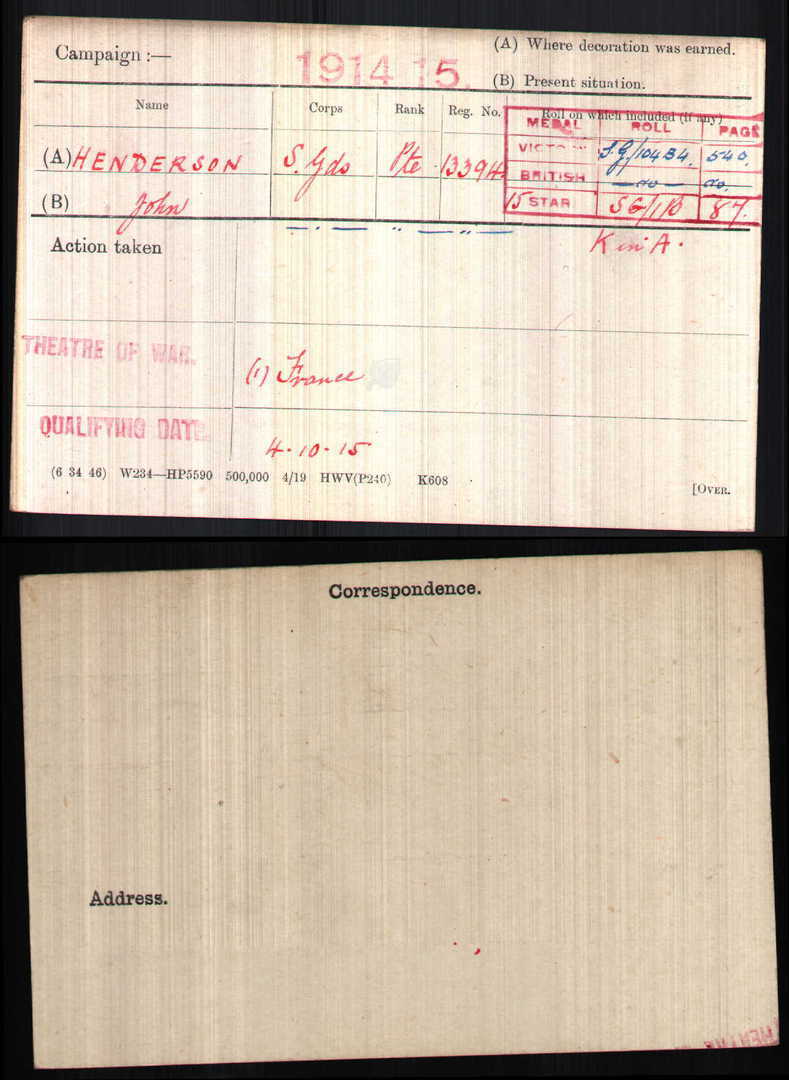 Campaign :—
1914 15.
(A) Where decoration was earned.
(B) Present situation.
Name Corps Rank Reg. No. Roll on which included (if any)
MEDAL ROLL PAGE
(A) HENDERSON S. Gds Pte 13394.
VICTORY S.G./104B4. 540.
BRITISH — do — do.
(B) John
15 STAR SG/1/B 87.
— " — " — " —
Action taken
K in A.
THEATRE OF WAR.
(1) France
QUALIFYING DATE.
4.10.15
(6 34 46) W234—HP5590 500,000 4/19 HWV(P240) K608
[OVER.
Correspondence.
Address.